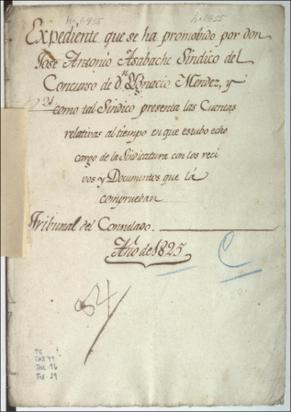 Expediente que se ha promobido por don
José Antonio Asabache Sindico del
Concurso de d.n Ygnacio Mendez, y
como tal Sindico presenta las Cuentas
relativas al tiempo en que estubo echo
cargo de la Sindicatura con los reci
vos y Documentos que la
comprueban
Tribunal del Consulado.
Año de 1825
C